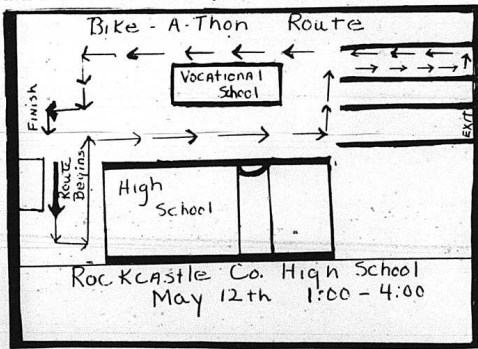 Bike - A - Thon Route
Vocational
School
FINISH
EXIT
Route
Begins
High
School
Rockcastle Co. High School
May 12th 1:00 - 4:00